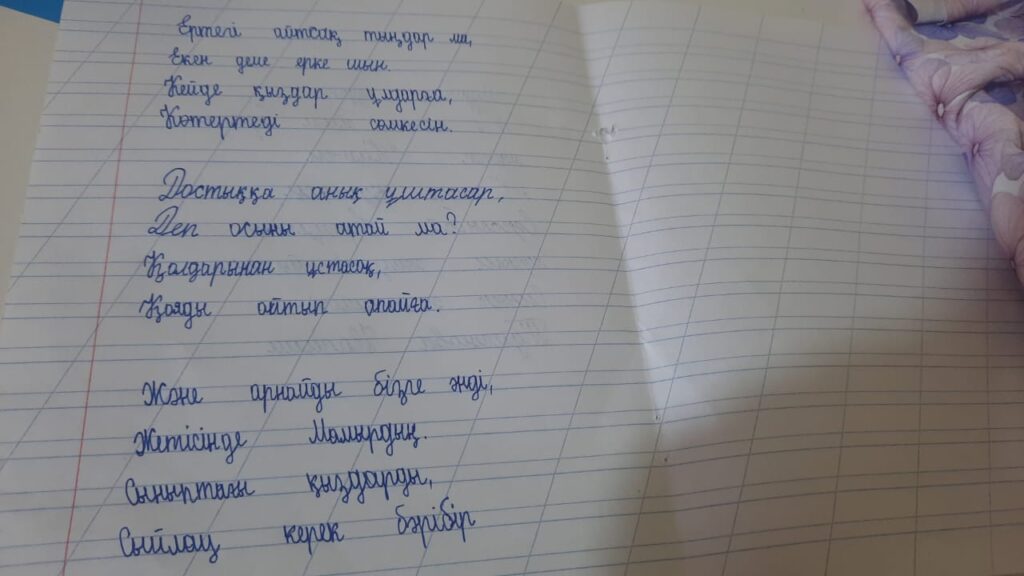 Ертегі айтсақ тыңдар ма,
Екен деме ерке шын.
Кейде қыздар ұлдарға,
Көтертеді сөмкесін.
Достыққа анық ұштасар,
Деп осыны атай ма?
Қолдарынан ұстасаң,
Қояды айтып апайға.
Және арнайды бізге әнді,
Жетісінде Мамырдың.
Сыныптағы қыздарды,
Сыйлау керек бәрібір